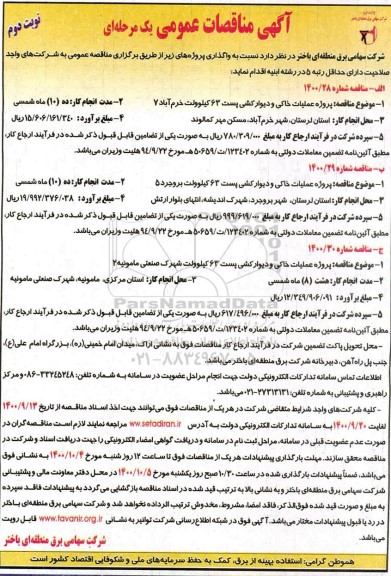 آگهی مناقصات عمومی یک مرحله‌ای
نوبت دوم
شرکت سهامی برق منطقه‌ای باختر در نظر دارد نسبت به واگذاری پروژه‌های زیر از طریق برگزاری مناقصه عمومی به شرکت‌های واجد
صلاحیت دارای حداقل رتبه ۵ در رشته ابنیه اقدام نماید:
الف- مناقصه شماره ۱۴۰۰/۲۸
۱- موضوع مناقصه: پروژه عملیات خاکی و دیوارکشی پست ۶۳ کیلوولت خرم‌آباد ۷
۲- مدت انجام کار: ده (۱۰) ماه شمسی
۳- محل انجام کار: استان لرستان، شهر خرم‌آباد، مسکن مهر کمالوند
۴- مبلغ برآورد: ۱۵/۶۰۶/۱۶۱/۳۴۰ ریال
۵- سپرده شرکت در فرآیند ارجاع کار به مبلغ ۷۸۰/۳۰۹/۰۰۰ ریال به صورت یکی از تضامین قابل قبول ذکر شده در فرآیند ارجاع کار،
مطابق آئین‌نامه تضمین معاملات دولتی به شماره ۱۲۳۴۰۲/ت۵۰۶۵۹هـ مورخ ۹۴/۹/۲۲ هیئت وزیران می‌باشد.
ب- مناقصه شماره ۱۴۰۰/۲۹
۱- موضوع مناقصه: پروژه عملیات خاکی و دیوارکشی پست ۶۳ کیلوولت بروجرد ۵
۲- مدت انجام کار: ده (۱۰) ماه شمسی
۳- محل انجام کار: استان لرستان، شهر بروجرد، شهرک اندیشه، انتهای بلوار ارتش
۴- مبلغ برآورد: ۱۹/۹۹۲/۳۷۶/۰۳۸ ریال
۵- سپرده شرکت در فرآیند ارجاع کار به مبلغ ۹۹۹/۶۱۹/۰۰۰ ریال به صورت یکی از تضامین قابل قبول ذکر شده در فرآیند ارجاع کار،
مطابق آئین‌نامه تضمین معاملات دولتی به شماره ۱۲۳۴۰۲/ت۵۰۶۵۹هـ مورخ ۹۴/۹/۲۲ هیئت وزیران می‌باشد.
ج- مناقصه شماره ۱۴۰۰/۳۰
۱- موضوع مناقصه: پروژه عملیات خاکی و دیوارکشی پست ۶۳ کیلوولت شهرک صنعتی مامونیه ۲
۲- مدت انجام کار: هشت (۸) ماه شمسی
۳- محل انجام کار: استان مرکزی، مامونیه، شهرک صنعتی مامونیه
۴- مبلغ برآورد: ۱۲/۳۴۹/۹۰۶/۰۹۱ ریال
۵- سپرده شرکت در فرآیند ارجاع کار به مبلغ ۶۱۷/۴۹۶/۰۰۰ ریال به صورت یکی از تضامین قابل قبول ذکر شده در فرآیند ارجاع کار،
مطابق آئین‌نامه تضمین معاملات دولتی به شماره ۱۲۳۴۰۲/ت۵۰۶۵۹هـ مورخ ۹۴/۹/۲۲ هیئت وزیران می‌باشد.
- محل تحویل پاکت تضمین شرکت در فرآیند ارجاع کار مناقصات فوق به نشانی اراک، میدان امام خمینی (ره)، بزرگراه امام علی (ع)،
جنب پل راه‌آهن، دبیرخانه شرکت برق منطقه‌ای باختر می‌باشد.
اطلاعات تماس سامانه تدارکات الکترونیکی دولت جهت انجام مراحل عضویت در سامانه به شماره تلفن: ۳۳۲۴۵۲۴۸-۰۸۶ و مرکز
راهبری و پشتیبانی به شماره تلفن: ۲۷۳۱۳۱۳۱-۰۲۱ می‌باشد.
- کلیه شرکت‌های واجد شرایط متقاضی شرکت در هر یک از مناقصات فوق می‌توانند جهت اخذ اسناد مناقصه از تاریخ ۱۴۰۰/۹/۱۳
لغایت ۱۴۰۰/۹/۲۰ به سامانه تدارکات الکترونیکی دولت به آدرس www.setadiran.ir مراجعه نمایند لازم است مناقصه‌گران در
صورت عدم عضویت قبلی در سامانه، مراحل ثبت نام در سامانه و دریافت گواهی امضاء الکترونیکی را جهت دریافت اسناد و شرکت در
مناقصه محقق سازند. مهلت بارگذاری پیشنهادات هر یک از مناقصات فوق تا ساعت ۱۲ روز شنبه مورخ ۱۴۰۰/۱۰/۴ به نشانی فوق
می‌باشد، ضمناً پیشنهادات بارگذاری شده در ساعت ۱۰/۳۰ صبح روز یکشنبه مورخ ۱۴۰۰/۱۰/۵ در محل دفتر معاونت مالی و پشتیبانی
شرکت سهامی برق منطقه‌ای باختر و به نشانی بالا به ترتیب قید شده در اسناد مناقصه بازگشایی می‌گردد به پیشنهادات فاقد سپرده
به مبلغ و صورت قید شده فوق‌الذکر، فاقد امضا، مشروط، مخدوش ترتیب اثر داده نخواهد شد و شرکت سهامی برق منطقه‌ای باختر
در رد یا قبول پیشنهادات مختار می‌باشد. آگهی فوق در شبکه اطلاع‌رسانی شرکت توانیر به نشانی www.tavanir.org.ir قابل رویت
می‌باشد.
شرکت سهامی برق منطقه‌ای باختر
هموطن گرامی: استفاده بهینه از برق، کمک به حفظ سرمایه‌های ملی و شکوفایی اقتصاد کشور است
ParsNamadData